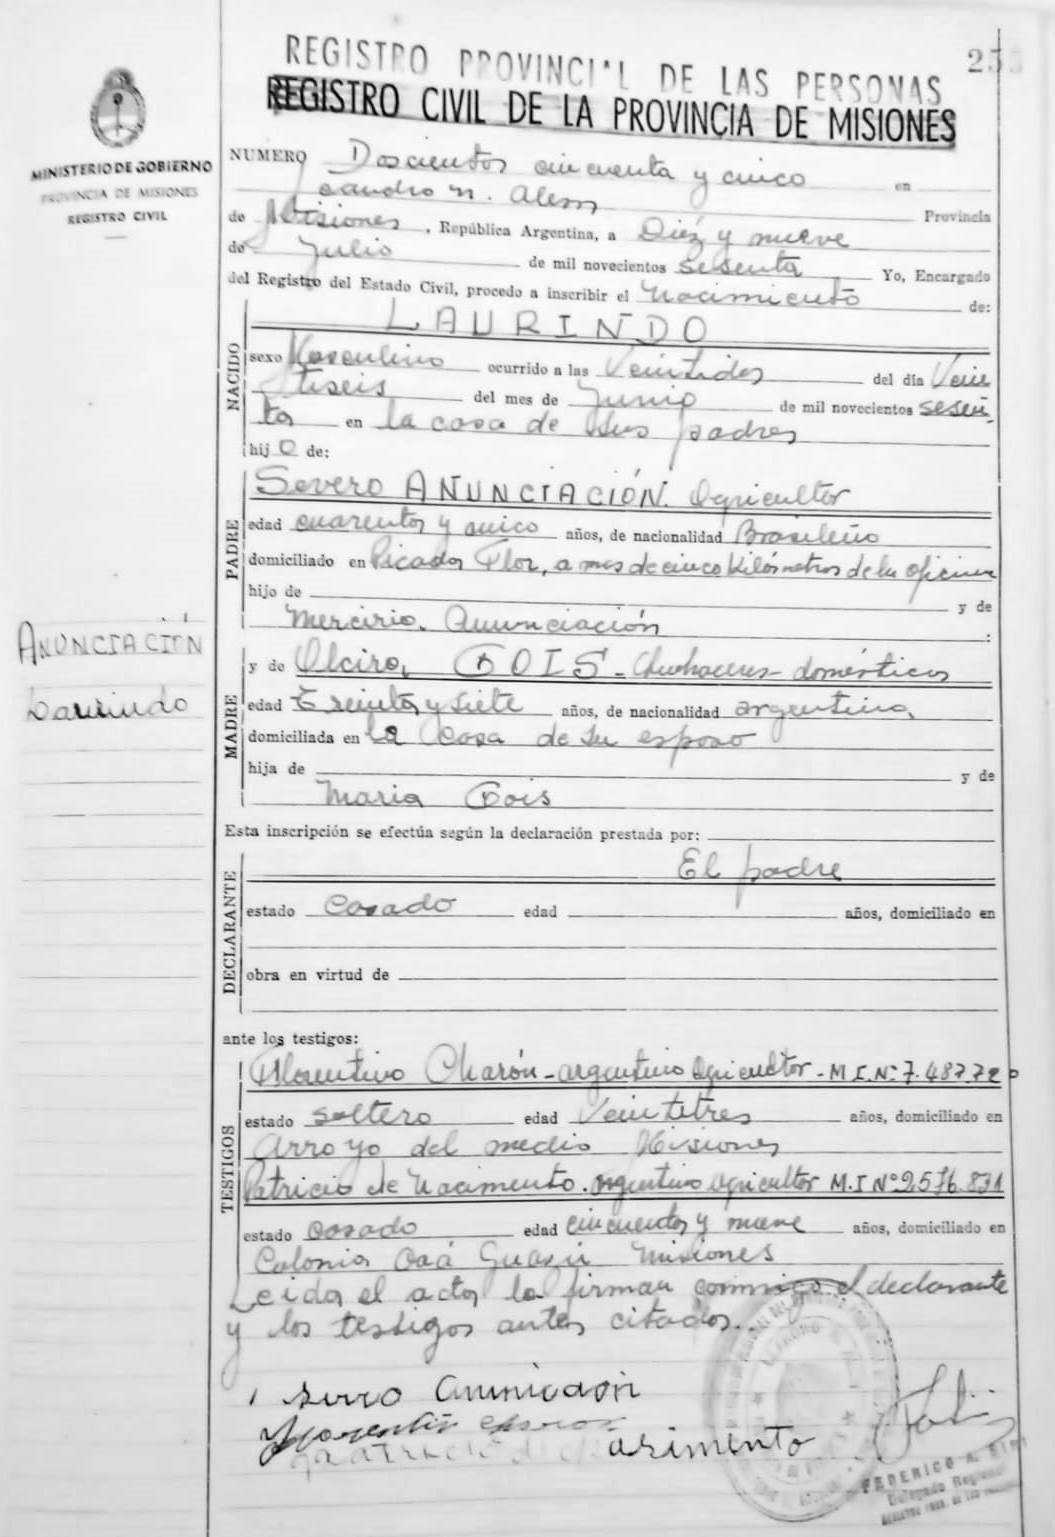 REGISTRO PROVINCIAL DE LAS PERSONAS
REGISTRO CIVIL DE LA PROVINCIA DE MISIONES
MINISTERIO DE GOBIERNO
PROVINCIA DE MISIONES
REGISTRO CIVIL
NUMERO Doscientos cincuenta y cinco en
Leandro N. Alem Provincia
de Misiones, República Argentina, a Diez y nueve
de Julio de mil novecientos sesenta Yo, Encargado
del Registro del Estado Civil, procedo a inscribir el Nacimiento de:
NACIDO
LAURINDO
sexo Masculino ocurrido a las Veintidos del día Vein
tiseis del mes de Junio de mil novecientos sesen
ta en la casa de sus padres
hijo de:
PADRE
Severo ANUNCIACIÓN. Agricultor
edad cuarenta y cinco años, de nacionalidad Brasileño
domiciliado en Picada Flor, a mas de cinco kilómetros de la oficina
hijo de y de
Mercirio Anunciación :
ANUNCIACIÓN
Laurindo
MADRE
y de Alcira BOIS - Quehaceres domésticos
edad Treinta y siete años, de nacionalidad argentina
domiciliada en la casa de su esposo
hija de y de
Maria Bois
Esta inscripción se efectúa según la declaración prestada por:
DECLARANTE
El padre
estado casado edad años, domiciliado en
obra en virtud de
ante los testigos:
TESTIGOS
Florentino Charón - argentino agricultor - M.I.Nº 7.487.720
estado soltero edad Veintitres años, domiciliado en
Arroyo del medio Misiones
Patricio de Nacimento. Argentino agricultor M.I Nº 2.576.831
estado casado edad cincuenta y nueve años, domiciliado en
Colonia Caá Guazú Misiones
Leida el acta la firman conmigo el declarante
y los testigos antes citados.
FEDERICO A.
Delegado Regional